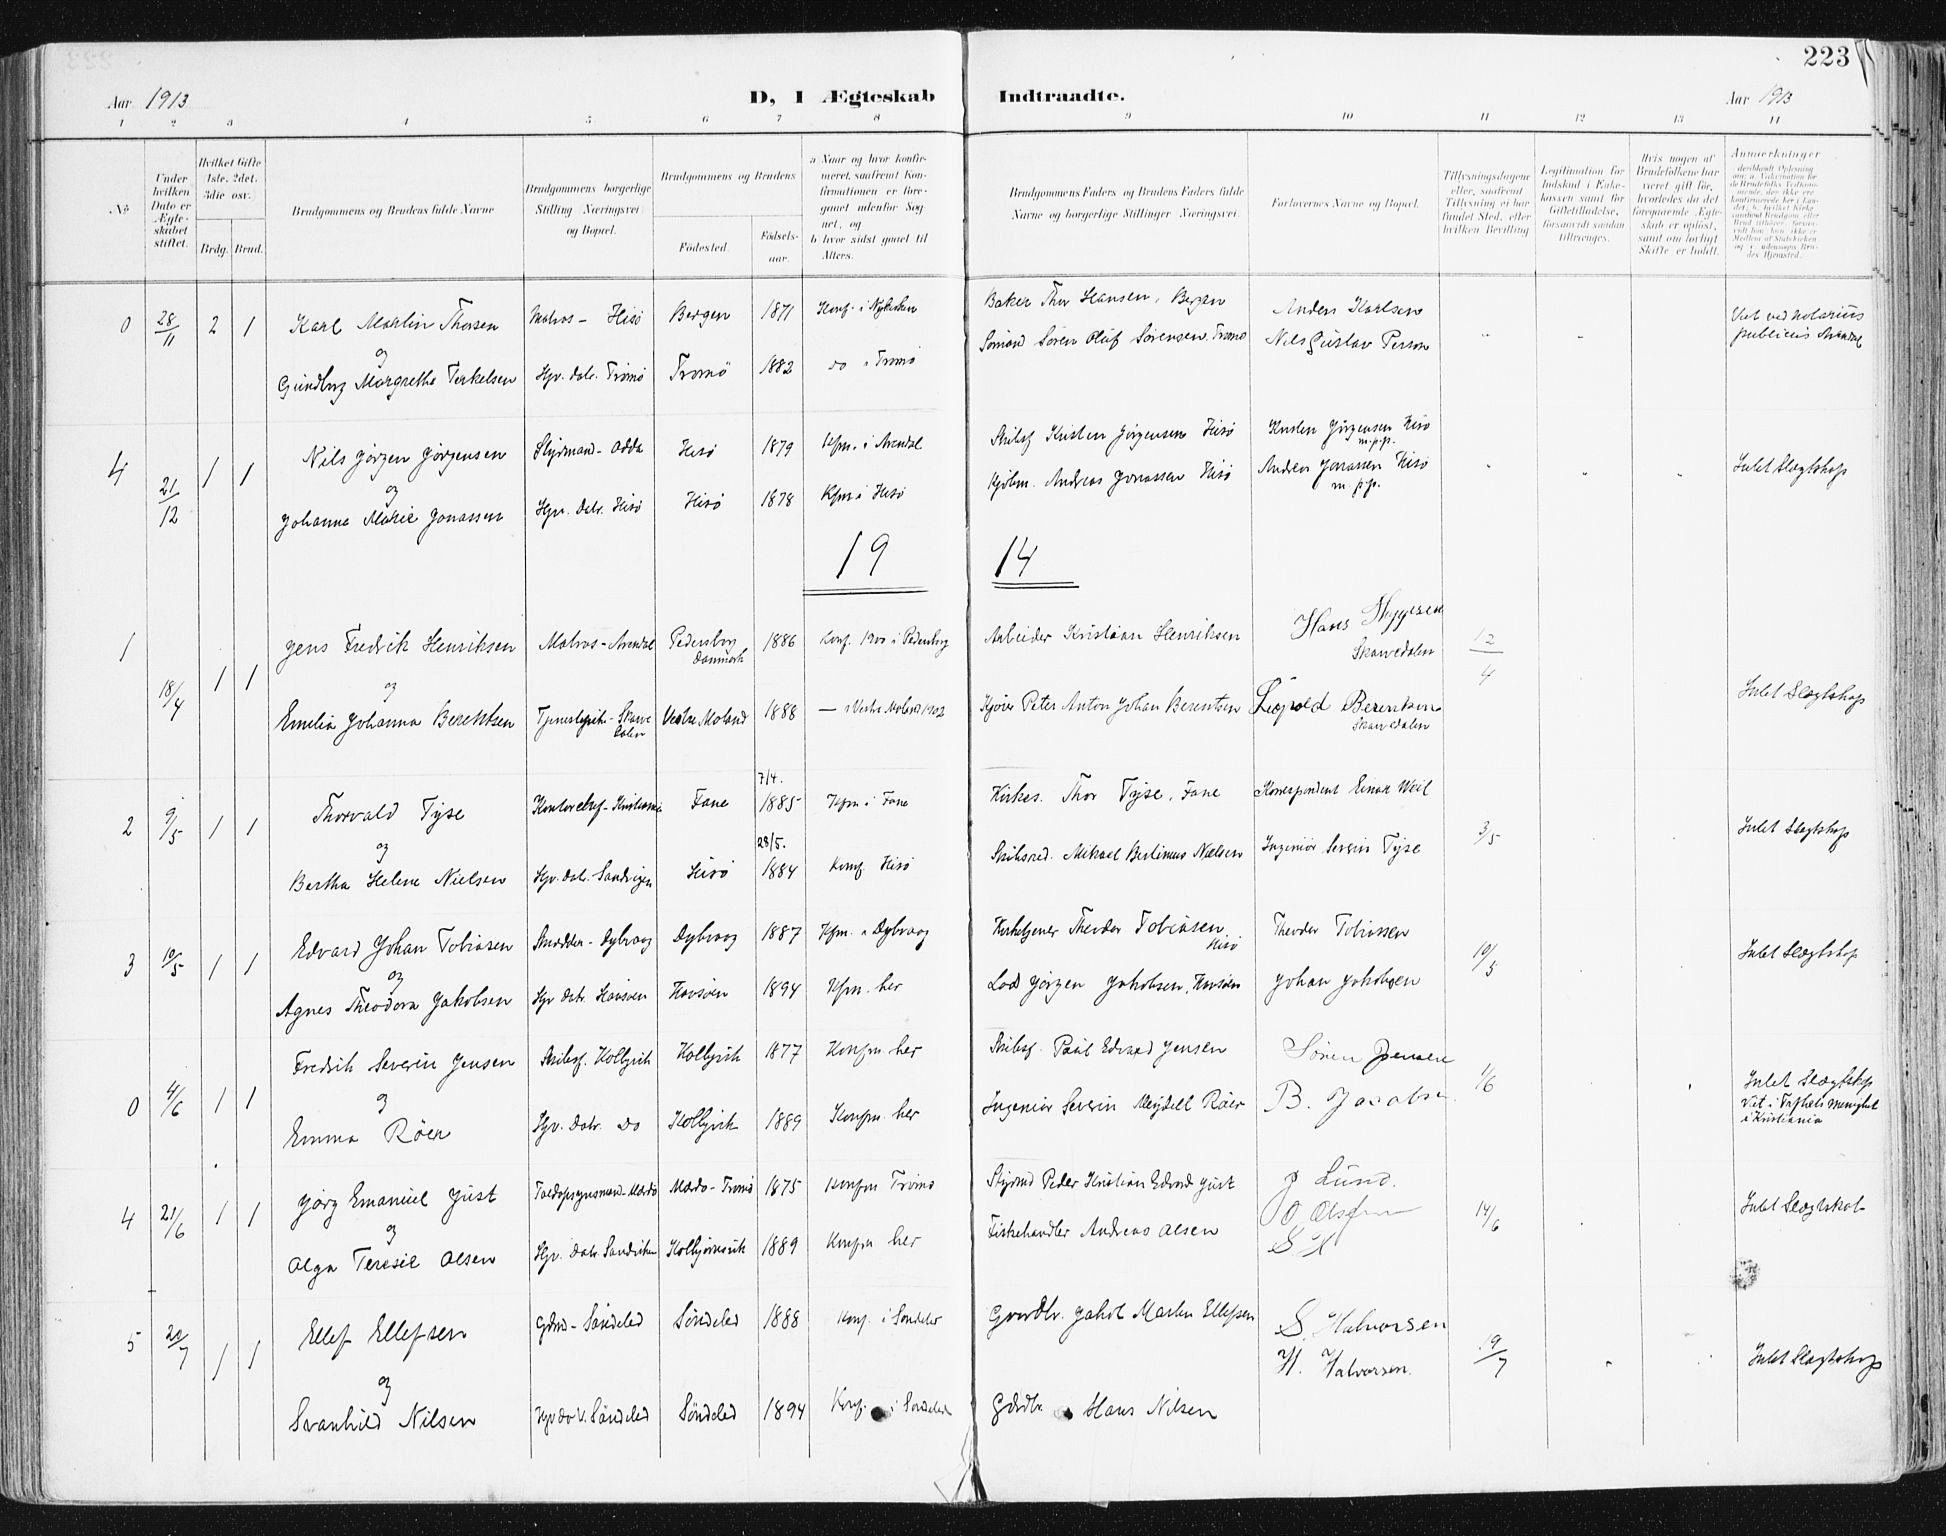 223
Aar 1913
D, I Ægteskab Indtraadte.
Aar 1913
1 2 3 4 5 6 7 8 9 10 11 12 13 14
No
Under hvilken Dato er Ægteskabet stiftet.
Hvilket Gifte 1ste, 2det, 3die osv.
Brdg. Brud.
Brudgommens og Brudens fulde Navne
Brudgommens borgerlige Stilling (Næringsvei) og Bopæl.
Brudgommens og Brudens
Fødested.
Fødselsaar.
a Naar og hvor konfirmeret, saafremt Konfirmationen er foregaaet udenfor Sognet, og
b hvor sidst gaaet til Alters.
Brudgommens Faders og Brudens Faders fulde Navne og borgerlige Stillinger (Næringsvei).
Forlovernes Navne og Bopæl.
Tillysningsdagene eller, saafremt Tillysning ei har fundet Sted, efter hvilken Bevilling
Legitimation for Indskud i Enkekassen samt for Giftetilladelse, forsaavidt saadan tiltrænges.
Hvis nogen af Brudefolkene har været gift før, hvorledes da det foregaaende Ægteskab er opløst, samt om lovligt Skifte er holdt.
Anmærkninger
0 28/11 2 1 Karl Martin Thorsen Matros - Hisø Bergen 1871 Konf. i Nykirken Baker Thor Hansen, Bergen Anders Karlsen Viet ved notarius publicus Arendal
og
Gundborg Margrethe Terkelsen Hgv. datr. Tromø Tromø 1882 do i Tromø Sømand Søren Oluf Sørensen. Tromø Nils Gustav Person
4 21/12 1 1 Nils Jørgen Jørgensen Styrmand - Odda Hisø 1879 Kfm. i Arendal Skibsf. Kristen Jørgensen Hisø Kristen Jørgensen Hisø m.p.p. Intet Slægtskap
og
Johanna Marie Jonassen Hgv. Datr. Hisø Hisø 1878 Kfm i Hisø Kjøbm. Andreas Jonassen Hisø Andreas Jonassen Hisø m.p.p.
19 14
1 18/4 1 1 Jens Fredrik Henriksen Matros - Arendal Pedersborg Danmark 1886 Konf. 1900 i Pedersborg Arbeider Kristian Henriksen Hans Skarvedalen 12/4 Intet Slægtskap
og
Emelia Johanna Berentsen Tjenestepike - Skarvedalen Vestre Moland 1888 — i Vestre Moland 1902 Peter Anton Johan Berentsen Leopold Berentsen Skarvedalen
2 9/5 1 1 Thorvald Tyse Kontorchef - Kristiania Fane 7/4. 1885 Kfm i Fane Kirkes. Thor Tyse, Fane Korrespondent Einar Weil 3/5 Intet Slægtskap
og
Bertha Helene Nielsen Hgv. datr. Sandvigen Hisø 28/5. 1884 Konf. Hisø Skibsred. Mikael Bertinius Nielsen Ingeniør Severin Tyse
3 10/5 1 1 Edvard Johan Tobiasen Skrædder - Dybvaag Dybvaag 1887 Kfm. i Dybvaag Kirketjener Theodor Tobiasen, Hisø Theodor Tobiassen 10/5 Intet Slægtskap
og
Agnes Theodora Jakobsen Hgv datr. Havsøen Havsøen 1894 Kfm. her Lods Jørgen Jakobsen, Havsøen Johan Jakobsen
0 4/6 1 1 Fredrik Severin Jensen Skibsf. Kolbjvik Kolbjvik 1877 Konfm. her Skibsf. Paul Edvard Jensen Søren Jensen 1/6 Intet Slægtskap Viet i menighet i Kristiania
og
Emma Röer Hgv. datr. do Kolbjvik 1889 Konfm. her Ingeniør Severin Meydell Röer B. Jacobsen
4 21/6 1 1 Jørg Emanuel Just Toldopsynsmand - Mærdø Mærdø - Tromø 1875 Konfm Tromø Styrmd Peder Kristian Edvard Just J Lund. 14/6 Intet Slægtskab
og
Olga Teresie Olsen Hgv. datr. Sandviken Kolbjørnsvik 1889 Konfm her Fiskehandler Andreas Olsen O Olsen
5 20/7 1 1 Ellef Ellefsen Gbrd - Söndeled Söndeled 1888 Konf. i Söndeled Gaardbr. Jakob Martin Ellefsen S. Halvorsen 19/7 Intet Slægtskap
og
Svanhild Nilsen Söndeled Söndeled 1894 Konf. i Söndeled Gardbr. Hans Nilsen H. Halvorsen.